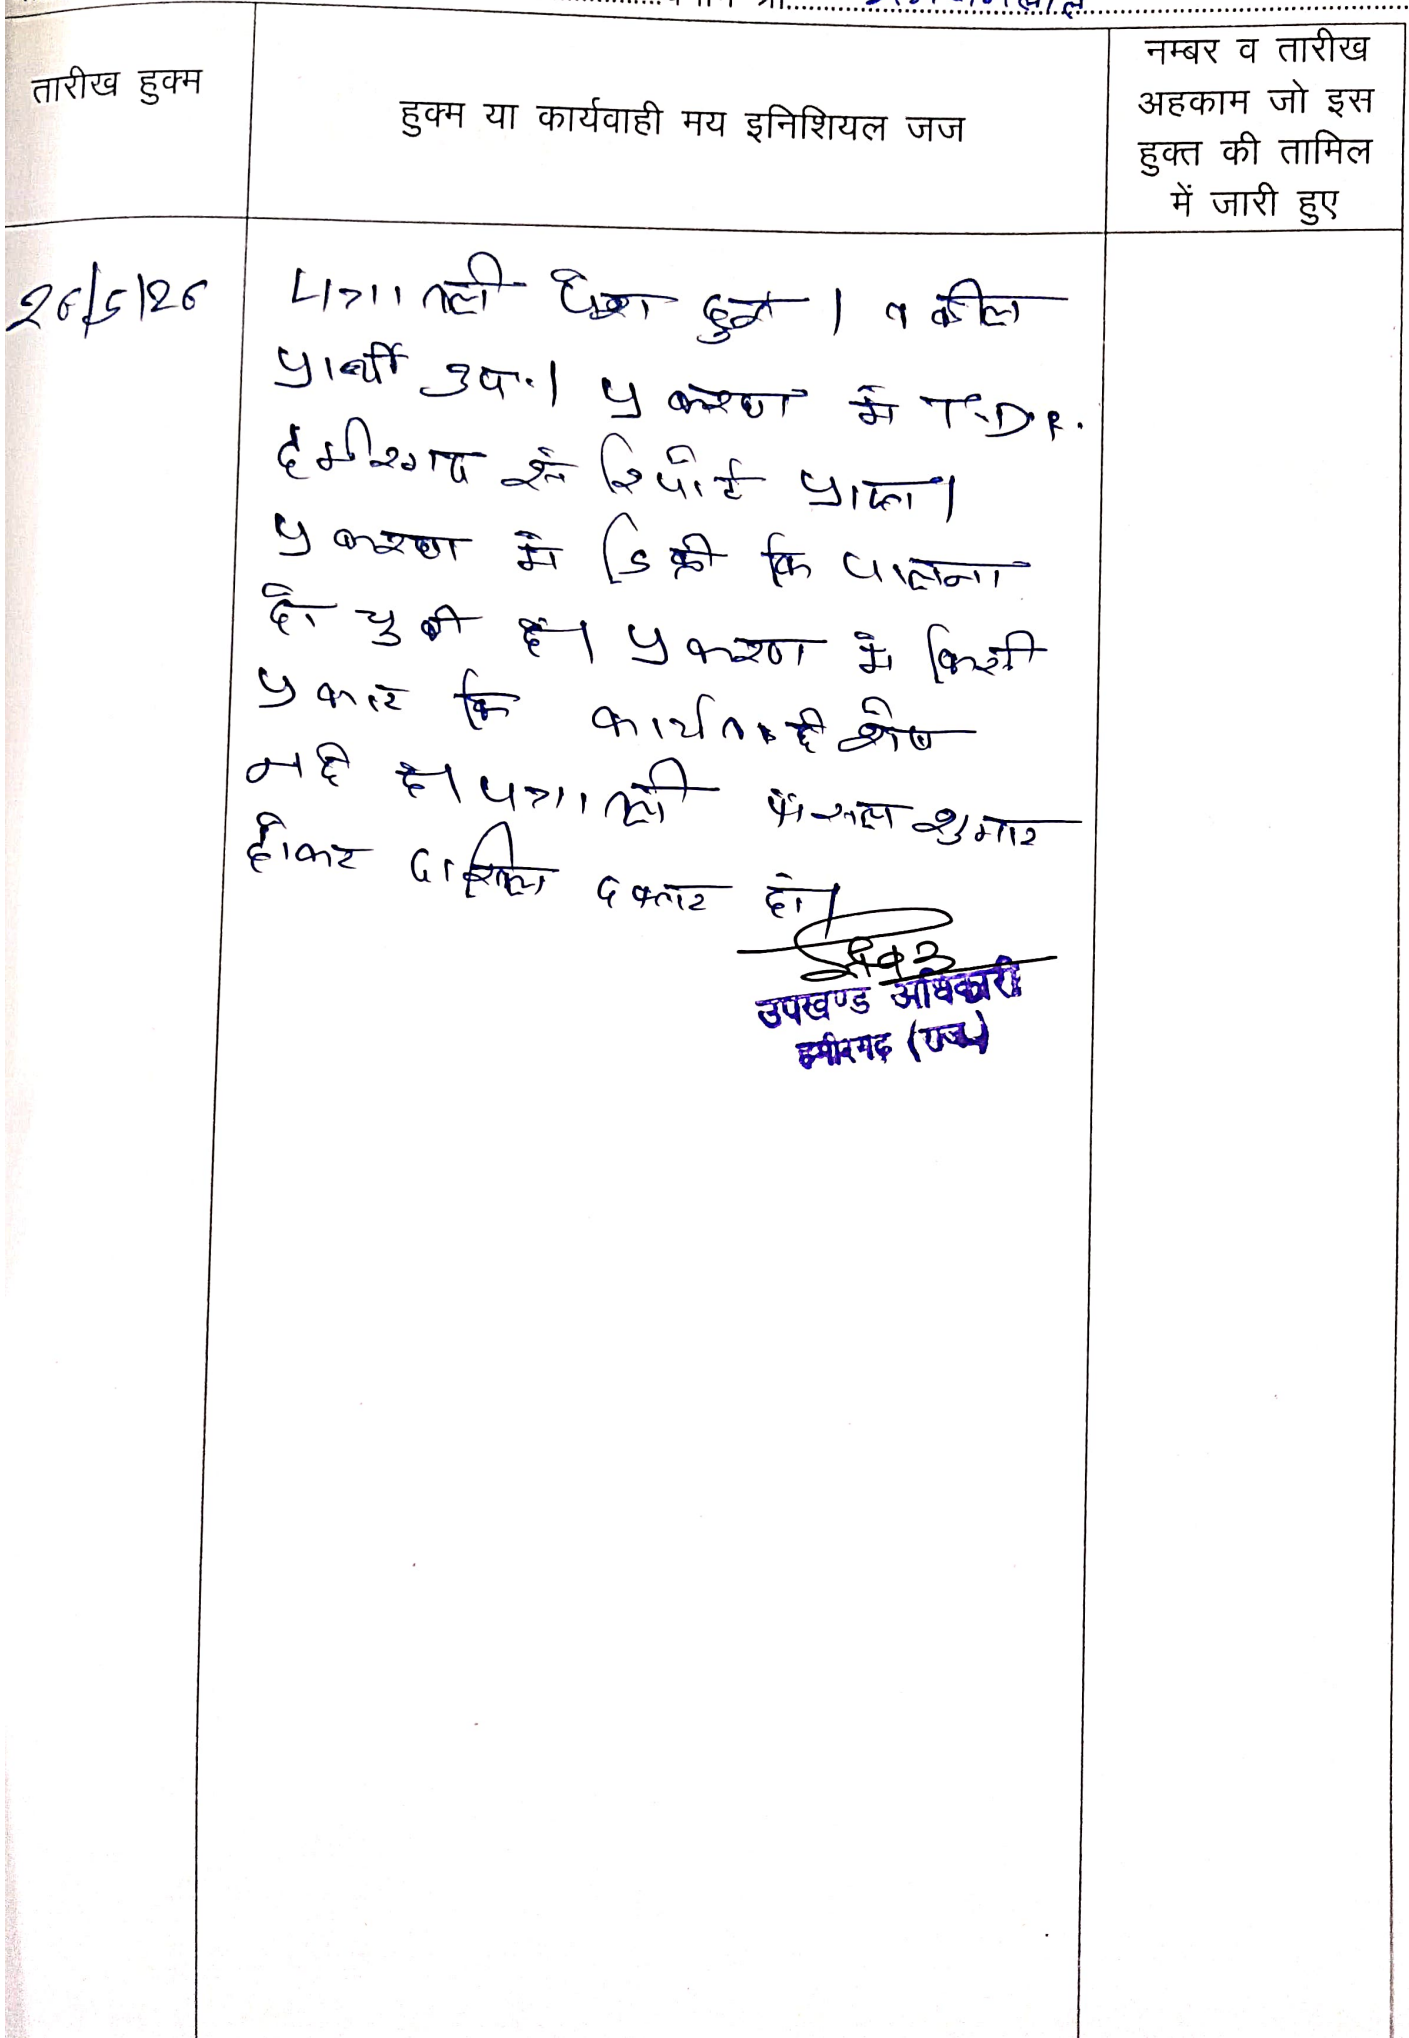 तारीख हुक्म
हुक्म या कार्यवाही मय इनिशियल जज
नम्बर व तारीख
अहकाम जो इस
हुक्त की तामिल
में जारी हुए
26/5/26
पत्रावली पेश हुई। वकील
प्रार्थी उप.। प्रकरण मे T.D.R.
हमीरगढ से रिपोर्ट प्राप्त।
प्रकरण मे डिक्री कि पालना
हो चुकी है। प्रकरण मे किसी
प्रकार कि कार्यवाही शेष
नहि है। पत्रावली फैसल शुमार
होकर दाखिल दफ्तर हो।
उपखण्ड अधिकारी
हमीरगढ़ (राज.)